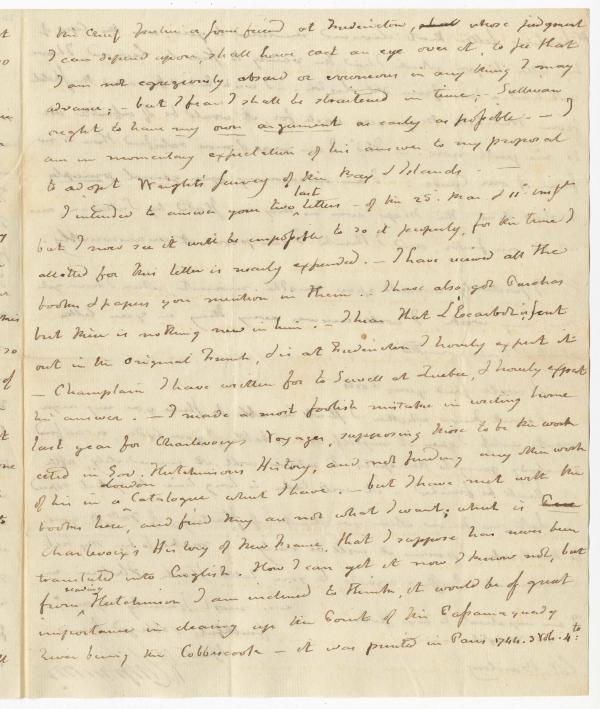 the Chief Justice or some friend at Fredericton, shall whose judgment
I can depend upon, shall have cast an eye over it, to see that
I am not egregiously absurd or erroneous in any thing I may
advance; – but I fear I shall be straitened in time; – Sullivan
ought to have my own argument as early as possible. – I
am in momentary expectation of his answer to my proposal
to adopt Wright's Survey of the Bay & Islands. –
I intended to answer your two last letters – of the 25. Mar. & 11th inst
but I now see it will be impossible to do it properly, for the time I
allotted for this letter is nearly expended. – I have received all the
books & papers you mention in them. – I have also got Purchas
but there is nothing new in him. – I hear that L'Escarbot is sent
out in the original French, & is at Fredericton I hourly expect it
– Champlain I have written for to Sewell at Quebec, & hourly expect
his answer. – I made a most foolish mistake in writing home
last year for Charlevoix's Voyages, supposing those to be the work
cited in Gov. Hutchinson's History, and not finding any other work
of his in a London Catalogue which I have. – but I have met with the
books here, and find they are not what I want; which is
Charlevoix's History of New France, that I suppose has never been
translated into English. How I can get it now I know not, but
from reading Hutchinson I am inclined to think, it would be of great
importance in clearing up the Point of the Passamaquady
River being the Cobbescook – it was printed in Paris 1744. 3 Vols. 4to: